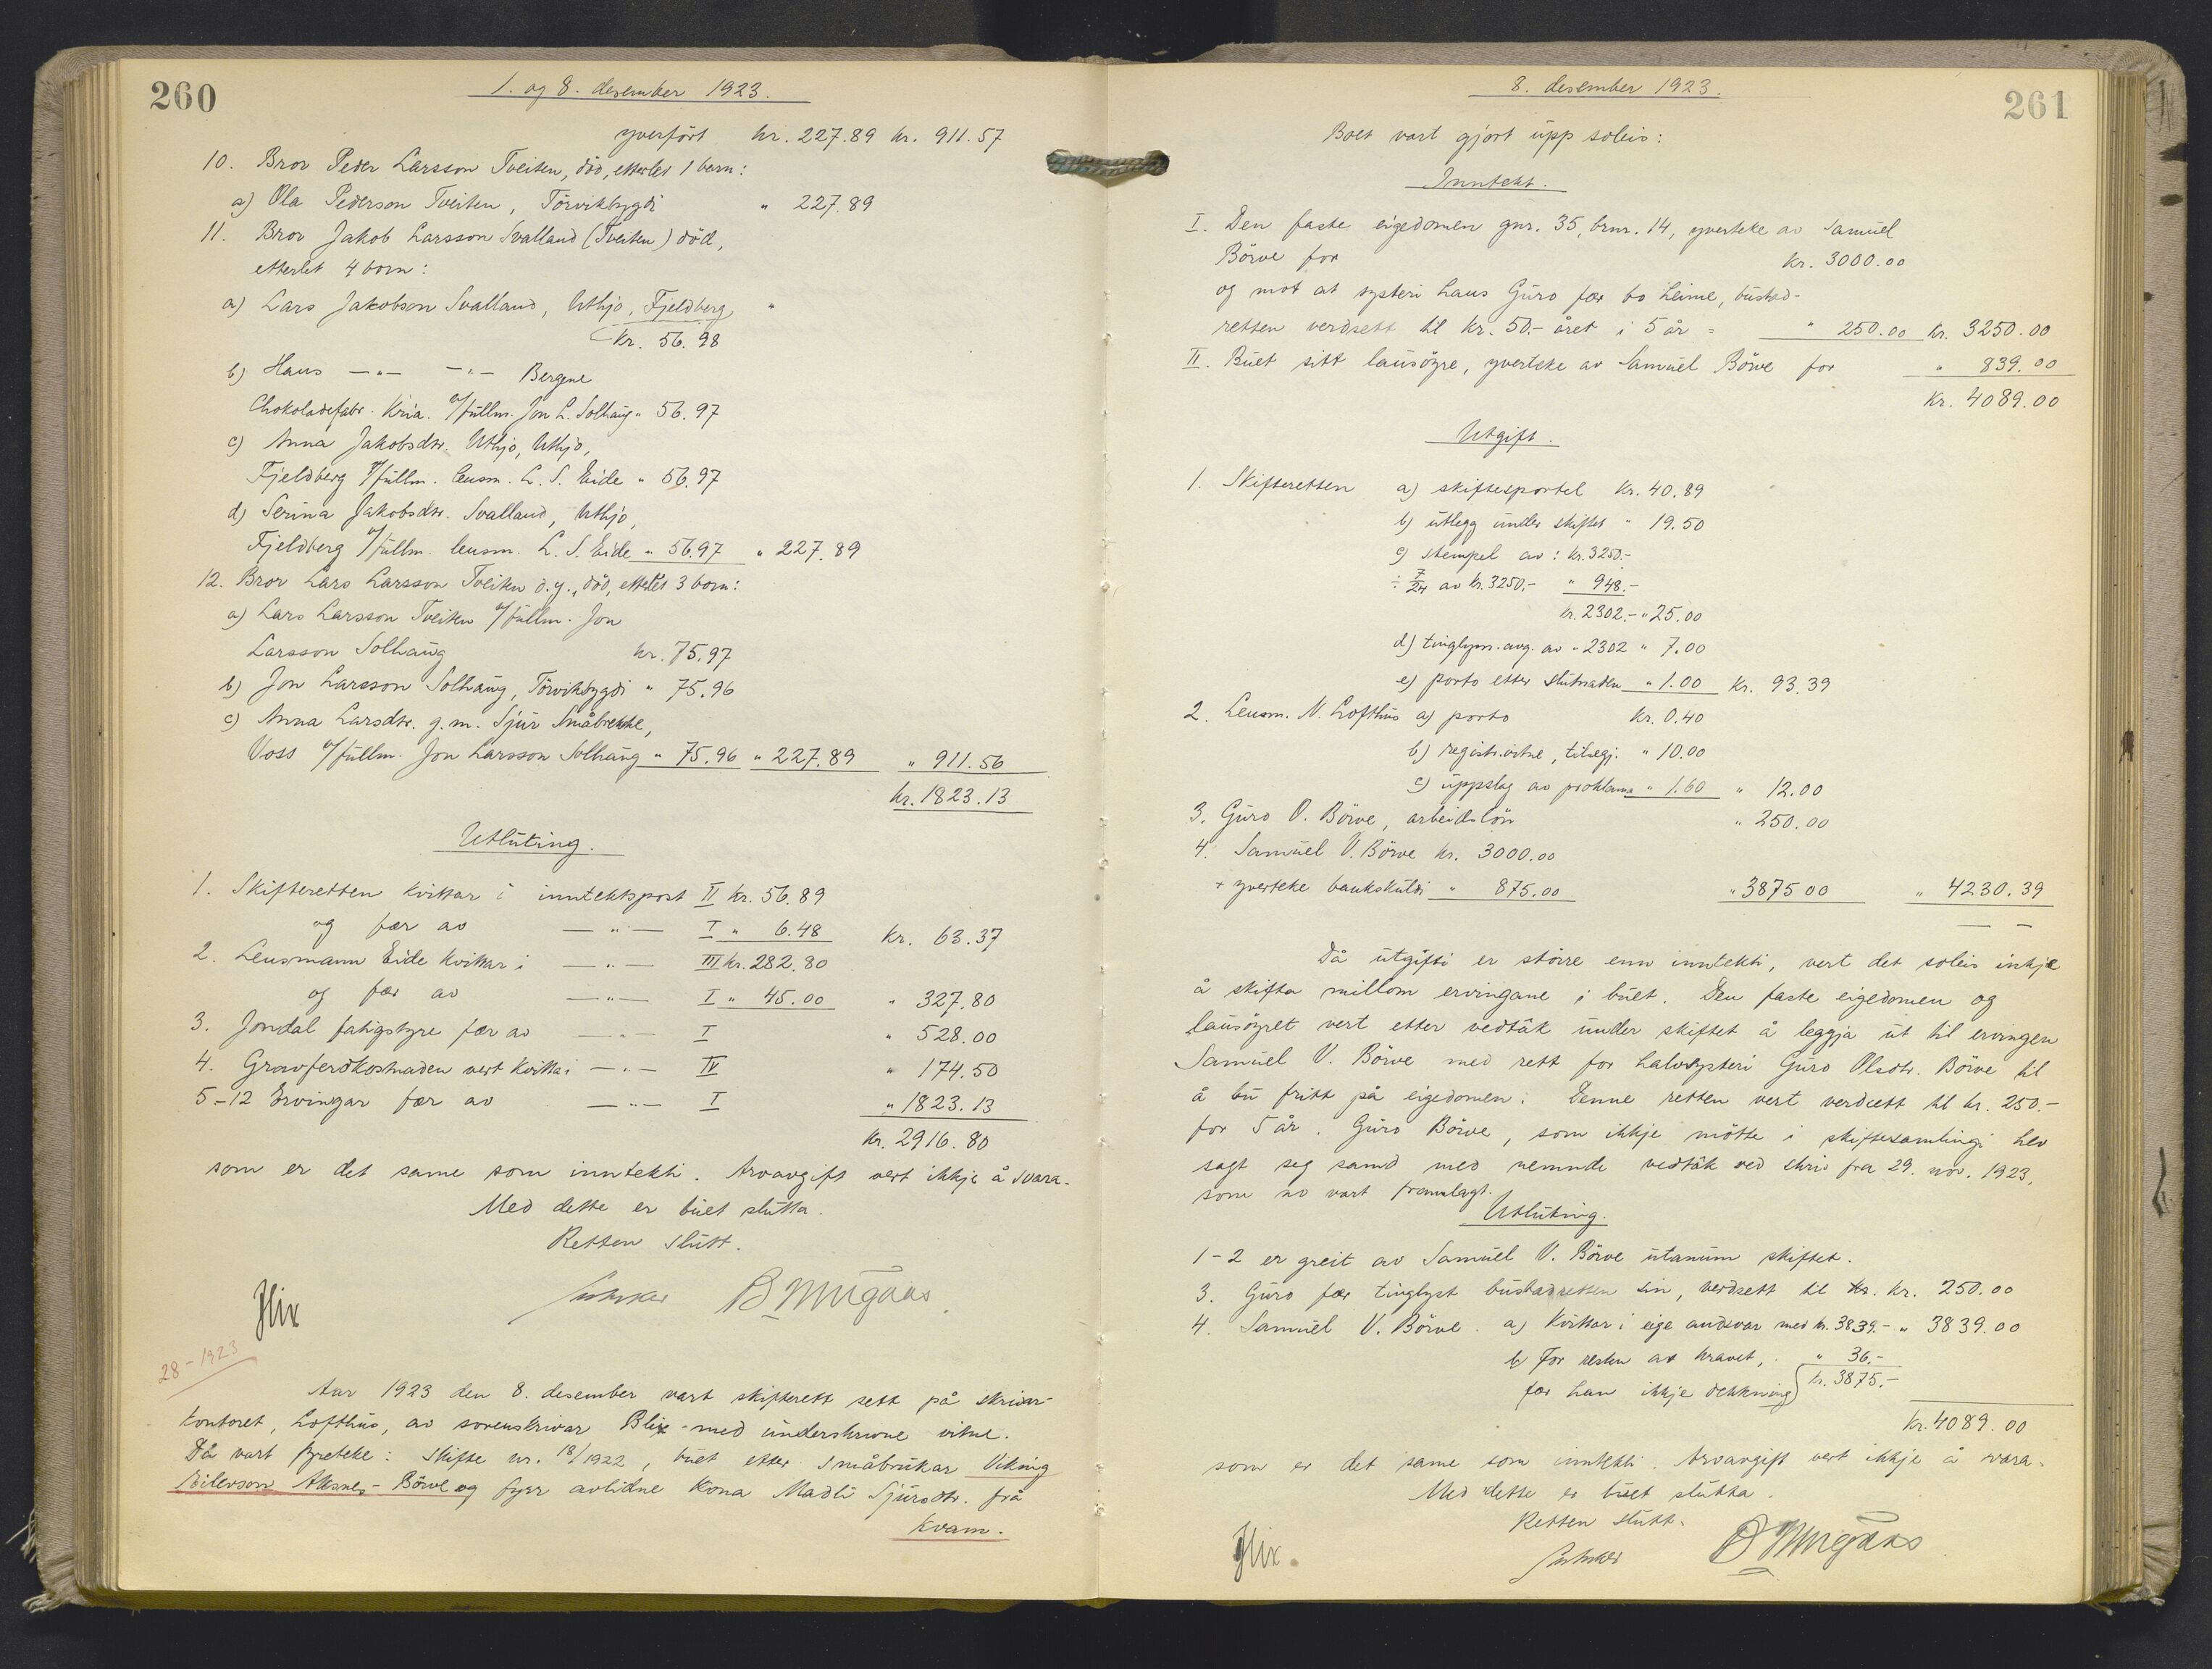 260
1. og 8. desember 1923.
yverført kr. 227.89 kr. 911.57
10. Bror Peder Larsson Tveiten, död, etterlet 1 barn:
a) Ola Pederson Tveiten, Törvikbygdi " 227.89
11. Bror Jakob Larsson Svalland (Tveiten) död,
etterlet 4 born:
a) Lars Jakobson Svalland, Uthjo, Fjeldberg "
kr. 56.98
b) Hans —"— —"— Bergene
Chokoladefabr. Kria. v/fullm. Jon L. Solhaug " 56.97
c) Anna Jakobsdtr. Uthjo, Uthjo,
Fjeldberg v/fullm. lensm. L. S. Eide " 56.97
d) Serina Jakobsdtr. Svalland, Uthjo,
Fjeldberg v/fullm. lensm. L. S. Eide " 56.97 " 227.89
12. Bror Lars Larsson Tveiten d.y., död, etterlet 3 born:
a) Lars Larsson Tveiten v/fullm. Jon
Larsson Solhaug kr. 75.97
b) Jon Larsson Solhaug, Törvikbygdi " 75.96
c) Anna Larsdtr. g.m. Sjur Småbrekke,
Voss v/fullm. Jon Larsson Solhaug " 75.96 " 227.89 " 911.56
kr. 1823.13
Utluting.
1. Skifteretten kvittar i inntektspost II kr. 56.89
og fær av —"— I " 6.48 kr. 63.37
2. Lensmann Eide kvittar i —"— III kr. 282.80
og fær av —"— I " 45.00 " 327.80
3. Jondal fatigstyre fær av —"— I " 528.00
4. Gravferdkostnaden vert kvitta i —"— IV " 174.50
5-12 Ervingar fær av —"— I " 1823.13
kr. 2916.80
som er det same som inntekti. Arvavgift vert ikkje å svara.
Med dette er buet slutta.
Retten slutt.
Blix B Murgaas.
28-1923
Aar 1923 den 8. desember vart skifterett sett på skrivar-
kontoret, Lofthus, av sorenskrivar Blix med underskrivne vitne.
Då vart fyreteke: Skifte nr. 18/1922, buet etter småbrukar Viking
Eilevson Aksnes-Börve og fyrr avlidne kona Madli Sjursdtr. frå
Kvam.
8. desember 1923.
261
Boet vart gjort upp soleis:
Inntekt.
I. Den faste eigedomen gnr. 35, brnr. 14, yverteke av Samuel
Börve for kr. 3000.00
og mot at systeri hans Guro fær bo heime, bustad-
retten verdsett til kr. 50.- året i 5 år = " 250.00 kr. 3250.00
II. Buet sitt lausöyre, yverteke av Samuel Börve for " 839.00
Kr. 4089.00
Utgift.
1. Skifteretten a) skiftesportel kr. 40.89
b) utlegg under skiftet " 19.50
c) stempel av: kr. 3250.-
÷ 7/24 av kr. 3250.- " 948.-
kr. 2302.- " 25.00
d) tinglysn.avg. av " 2302 " 7.00
e) porto etter slutnaden " 1.00 kr. 93.39
2. Lensm. N. Lofthus a) porto kr. 0.40
b) registr.vitne, tilsegj. " 10.00
c) uppslag av proklama " 1.60 " 12.00
3. Guro O. Börve, arbeidslön " 250.00
4. Samuel V. Börve kr. 3000.00
+ yverteke bankskuld " 875.00 " 3875 00 " 4230.39
Då utgifti er större enn inntekti, vert det soleis inkje
å skifta millom ervingane i buet. Den faste eigedomen og
lausöyret vert etter vedtak under skiftet å leggja ut til ervingen
Samuel V. Börve med rett for halvsysteri Guro Olsdtr. Börve til
å bu fritt på eigedomen. Denne retten vert verdsett til kr. 250.-
for 5 år. Guro Börve, som ikkje mötte i skiftesamlingi hev
sagt seg samd med nemnde vedtak ved skriv fra 29. nov. 1923,
som no vart framlagt.
Utluting.
1-2 er greit av Samuel V. Börve utanum skiftet.
3. Guro fær tinglyst bustadretten sin, verdsett til kr. kr. 250.00
4. Samuel V. Börve. a) kvittar i eige andsvar med kr. 3839.- " 3839.00
b) For resten av kravet, " 36.-
fær han ikkje dekkning kr. 3875.-
kr. 4089.00
som er det same som inntekti. Arvavgift vert ikkje å svara.
Med dette er buet slutta.
Retten slutt.
Blix. B Murgaas